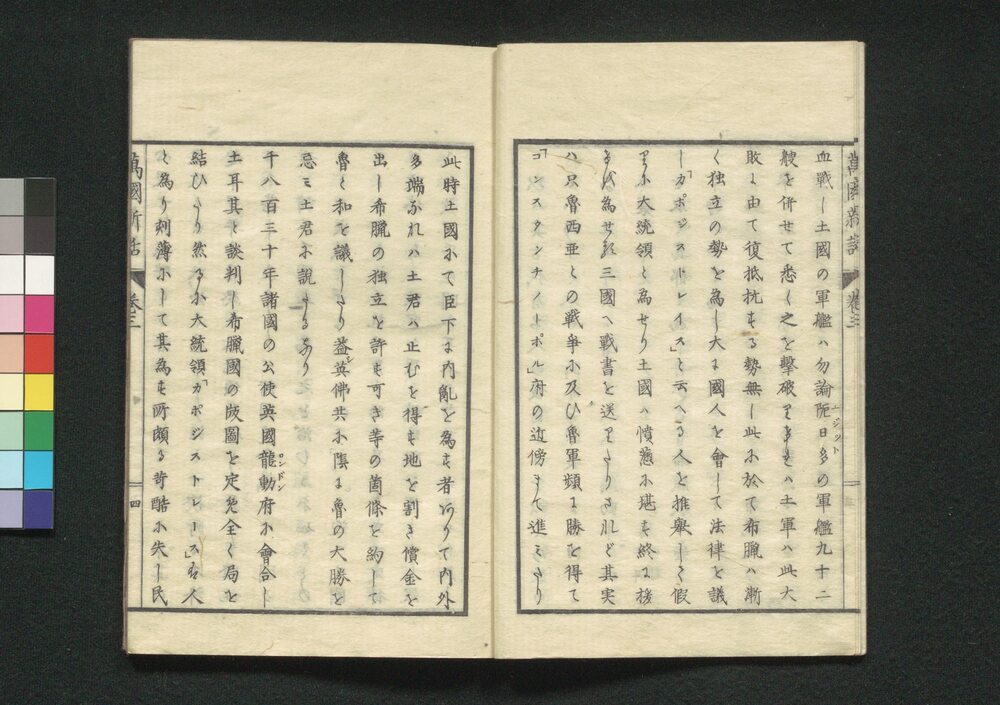 血戦し土國の軍艦ハ勿論阨日多の軍艦九十二
エジット
艘を併せて悉く之を擊破りしかバ土軍ハ此大
敗に由て復抵抗する勢無し此に於て希臘ハ漸
く独立の勢を為し大に國人を會して法律を議
し「カポジストレイス」と云へる人を推舉して假
りに大統領と為せり土國ハ憤懣に堪す終に接
戦为せる三國へ戦書を送りたりされど其実
ハ只魯西亜との戦爭に及ひ魯軍頻に勝を得て
「コンスタンチノートポル」府の近傍まて進ミたり
此時土國にて臣下に内亂を為す者ありて内外
多端なれハ土君ハ止むを得す地を割き償金を
出し希臘の独立を許す可き等の箇條を約して
魯と和を議したり益英佛共に陰に魯の大勝を
忌ミ土君に説たるなり
千八百三十年諸國の公使英國龍動府に會合し
ロンドン
土耳其と談判し希臘國の版圖を定め全く局を
結ひたり然るに大統領「カポジストレース」名人
と為り刻薄にして其為す所頗る苛酷に失し民
萬國新話
卷三
四
萬國新話
卷三